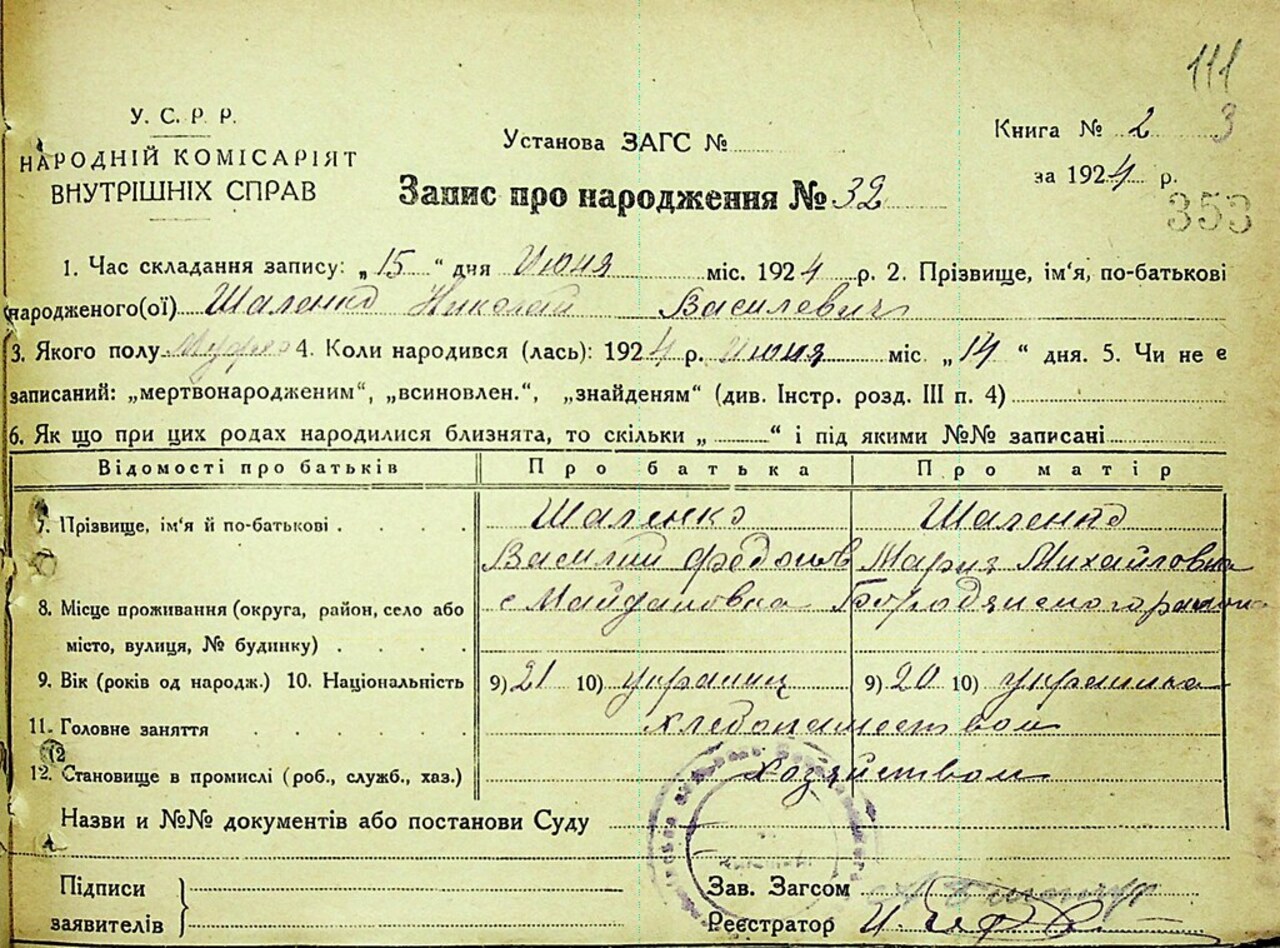 111
У. С. Р. Р.
НАРОДНІЙ КОМІСАРІЯТ
ВНУТРІШНІХ СПРАВ
Установа ЗАГС №
Книга № 2 3
за 1924 р.
353
Запис про народження № 32
1. Час складання запису: „15“ дня Июня міс. 1924 р. 2. Прізвище, ім'я, по-батькові
народженого(ої) Шаленко Николай Василевич
3. Якого полу 4. Коли народився (лась): 1924 р. Июня міс. „14“ дня. 5. Чи не є
записаний: „мертвонародженим“, „всиновлен.“, „знайденям“ (див. Інстр. розд. III п. 4)
6. Як що при цих родах народилися близнята, то скільки „ “ і під якими №№ записані
Відомості про батьків Про батька Про матір
7. Прізвище, ім'я й по-батькові Шаленко Шаленко
Василий Федосов Мария Михайловна
8. Місце проживання (округа, район, село або с Майдановка Бородянского района
місто, вулиця, № будинку)
9. Вік (років од народж.) 10. Національність 9) 21 10) украинц 9) 20 10) украинка
11. Головне заняття хлебопашеством
12
12. Становище в промислі (роб., служб., хаз.) хозяйством
Назви и №№ документів або постанови Суду
Підписи
заявителів
Зав. Загсом
Реєстратор И.